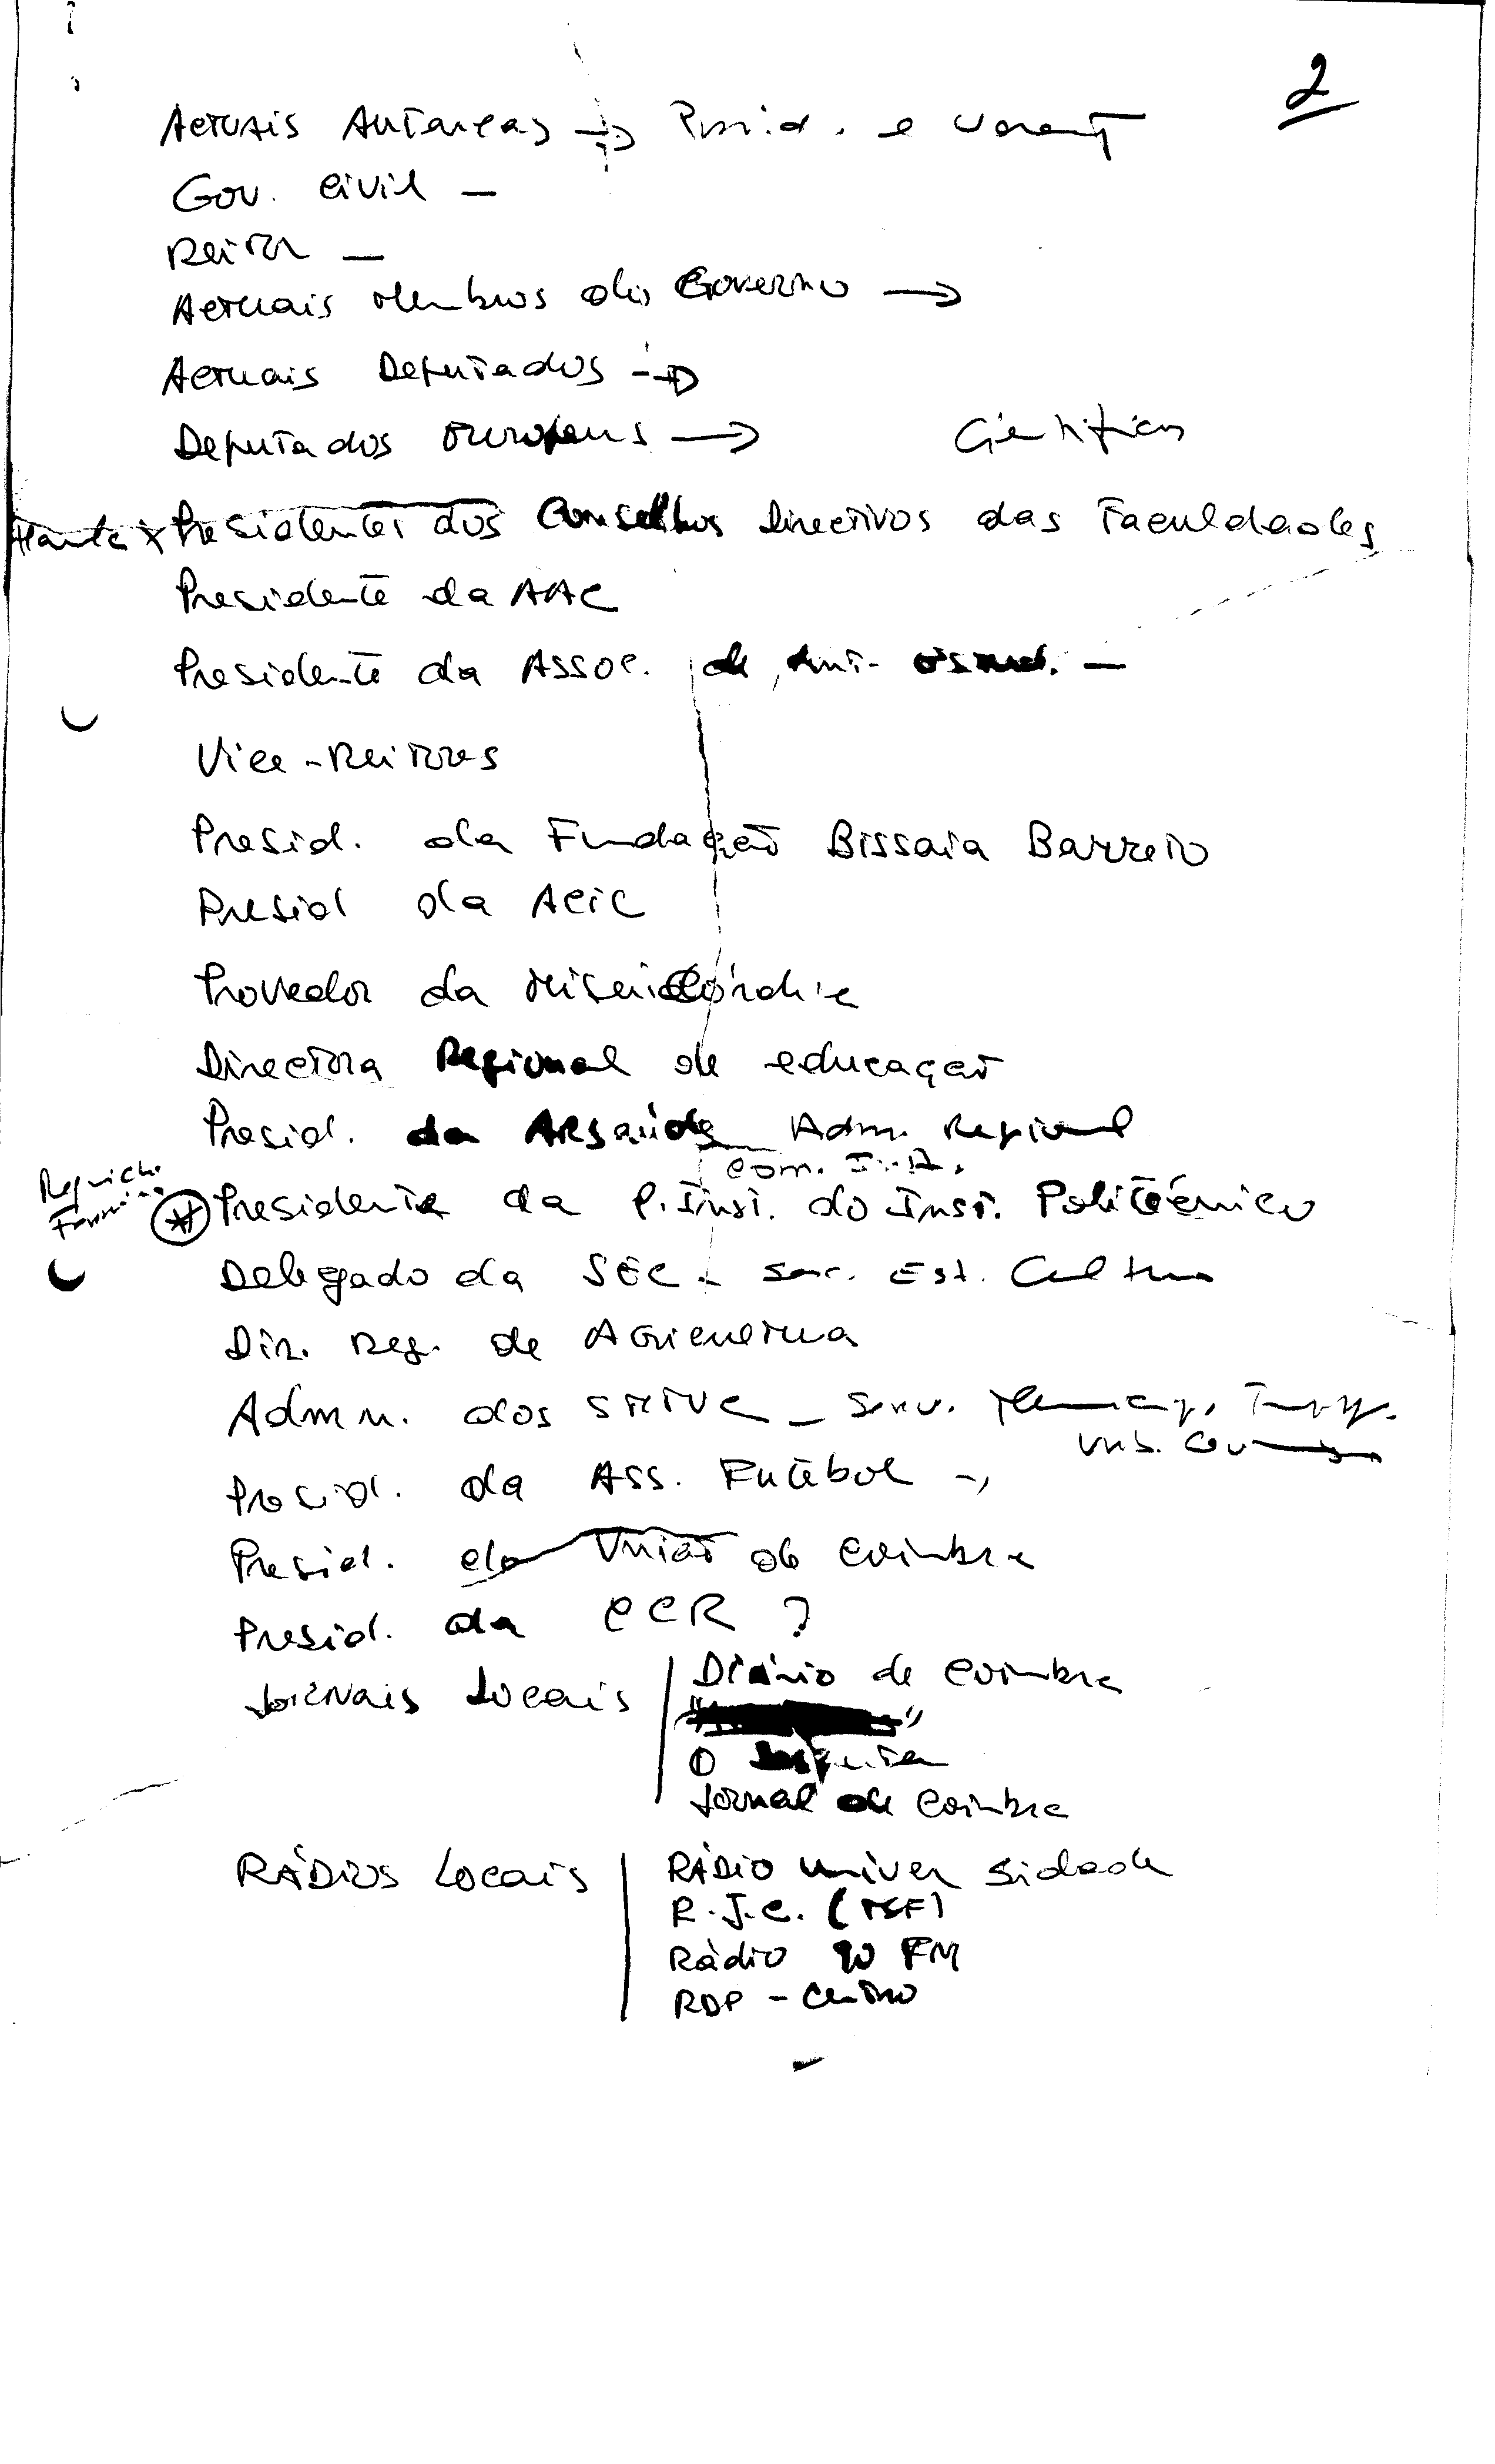 2
Actuais Autarcas → Presid. e
Gov. Civil –
Reitor –
Actuais Membros do Governo →
Actuais Deputados →
Deputados Europeus →
Científicos
Presidentes dos Conselhos Directivos das Faculdades
Presidente da AAC
Presidente da Assoc. de Ant. Estud. –
Vice-Reitores
Presid. da Fundação Bissaia Barreto
Presid da ACIC
Provedor da Misericórdia
Directora Regional de educação
Presid. da ARSaúde Adm. Regional
Com. Inst.
Presidente da C. Inst. do Inst. Politécnico
Delegado da SEC – Sec. Est. Cultura
Dir. Reg. de Agricultura
Admn. dos SMTUC – Serv. Transp.
Urb. Coimbra
Presid. da Ass. Futebol –
Presid. do União de Coimbra
Presid. da CCR ?
Jornais Locais | Diário de Coimbra
O
Jornal de Coimbra
RÁDIOS Locais | RÁDIO Universidade
R.J.C. (TSF)
Rádio 90 FM
RDP – Centro